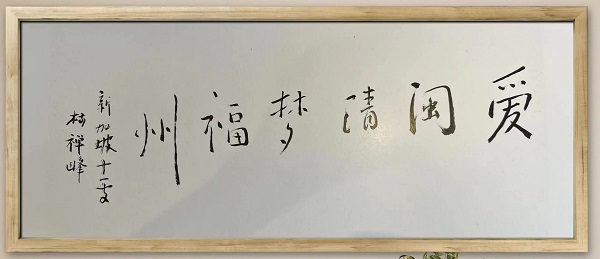 爱闽清梦福州
新加坡十一
林禅峰